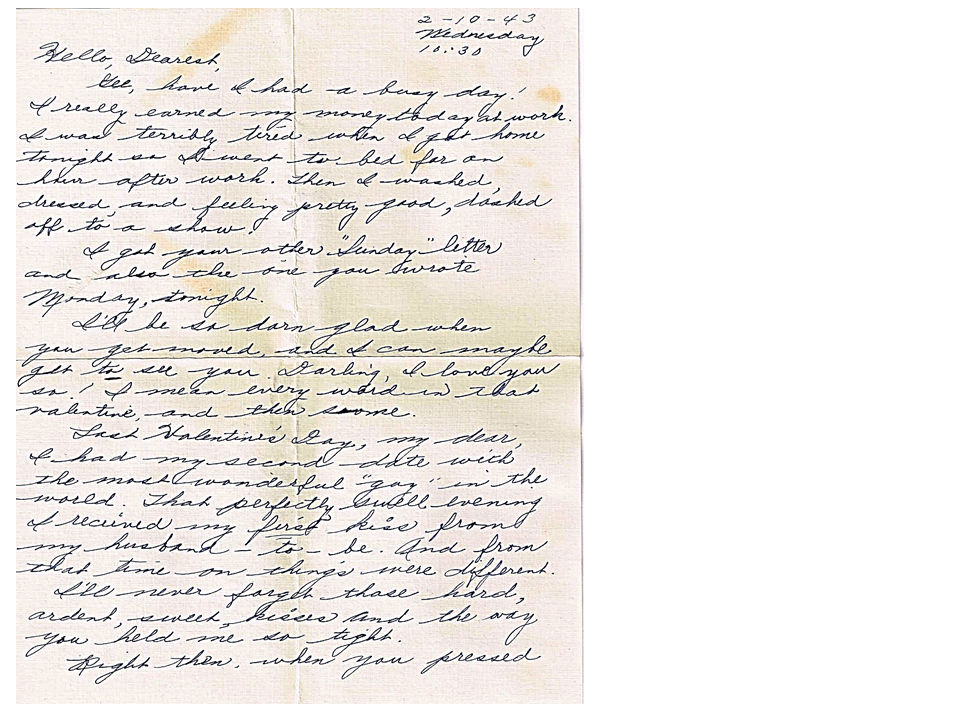 2-10-43
Wednesday
10:30
Hello, Dearest,
Gee, have I had a busy day!
I really earned my money today at work.
I was terribly tired when I got home
tonight so I went to bed for an
hour after work. Then I washed,
dressed, and feeling pretty good, dashed
off to a show.
I got your other "Sunday" letter
and also the one you wrote
Monday, tonight.
I'll be so darn glad when
you get moved, and I can maybe
get to see you. Darling, I love you
so! I mean every word in that
valentine, and then some.
Last Valentine's Day, my dear,
I had my second date with
the most wonderful "guy" in the
world. That perfectly swell evening
I received my first kiss from
my husband-to-be. And from
that time on things were different.
I'll never forget those hard,
ardent, sweet, kisses and the way
you held me so tight.
Right then, when you pressed